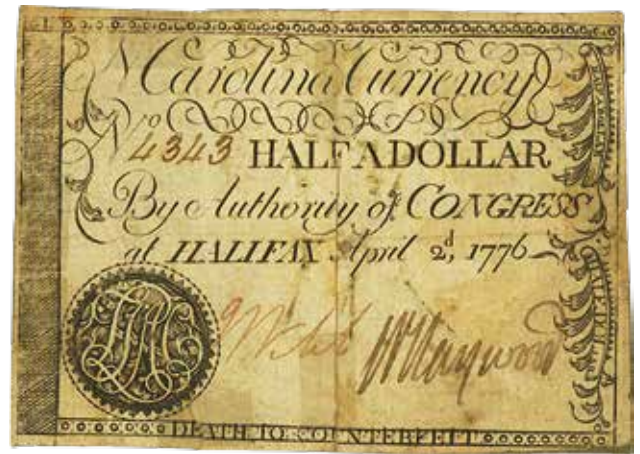 N Carolina Currency
No 4343 HALF A DOLLAR
By Authority of CONGRESS
at HALIFAX April 2d, 1776
HALF A DOLLAR
DEATH TO COUNTERFEIT